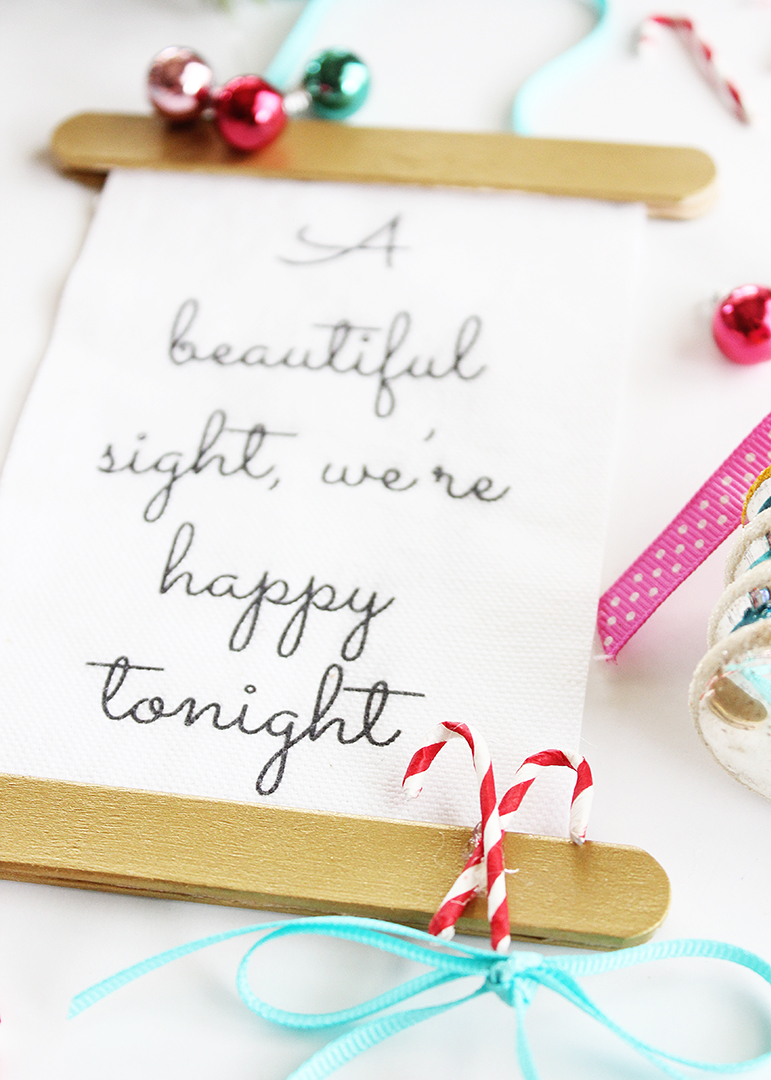 A
beautiful
sight, we're
happy
tonight